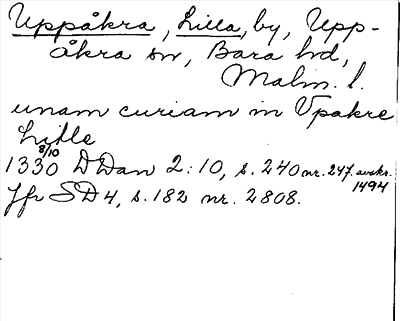 Uppåkra, Lilla, by, Upp-
åkra sn, Bara hd,
Malm. l.
unam curiam in Vpakre
Litle
1330 8/10 DDan 2:10, s. 240 nr. 247. avskr. 1494
Jfr SD 4, s. 182 nr. 2808.